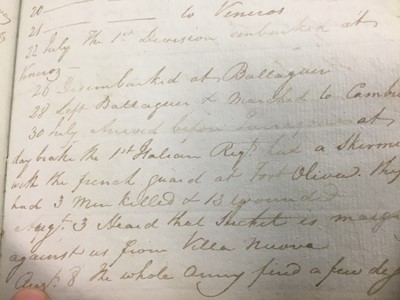 20 ——
21 —— to Veneros
22 July The 1st Division embarked at
Veneros —
26 Disembarked at Ballaguer
28 Left Balsaguer & Marched to Cambri
30 July arrived before at
day brake the 1st Italian Regt. had a Skirmi
with the french guard at Fort Oliver. They
had 3 Men killed & 13 wounded
Augt. 3 Heard that Suchet is
against us from Villa Nuova
Augt. 8 The whole Army fired a few de